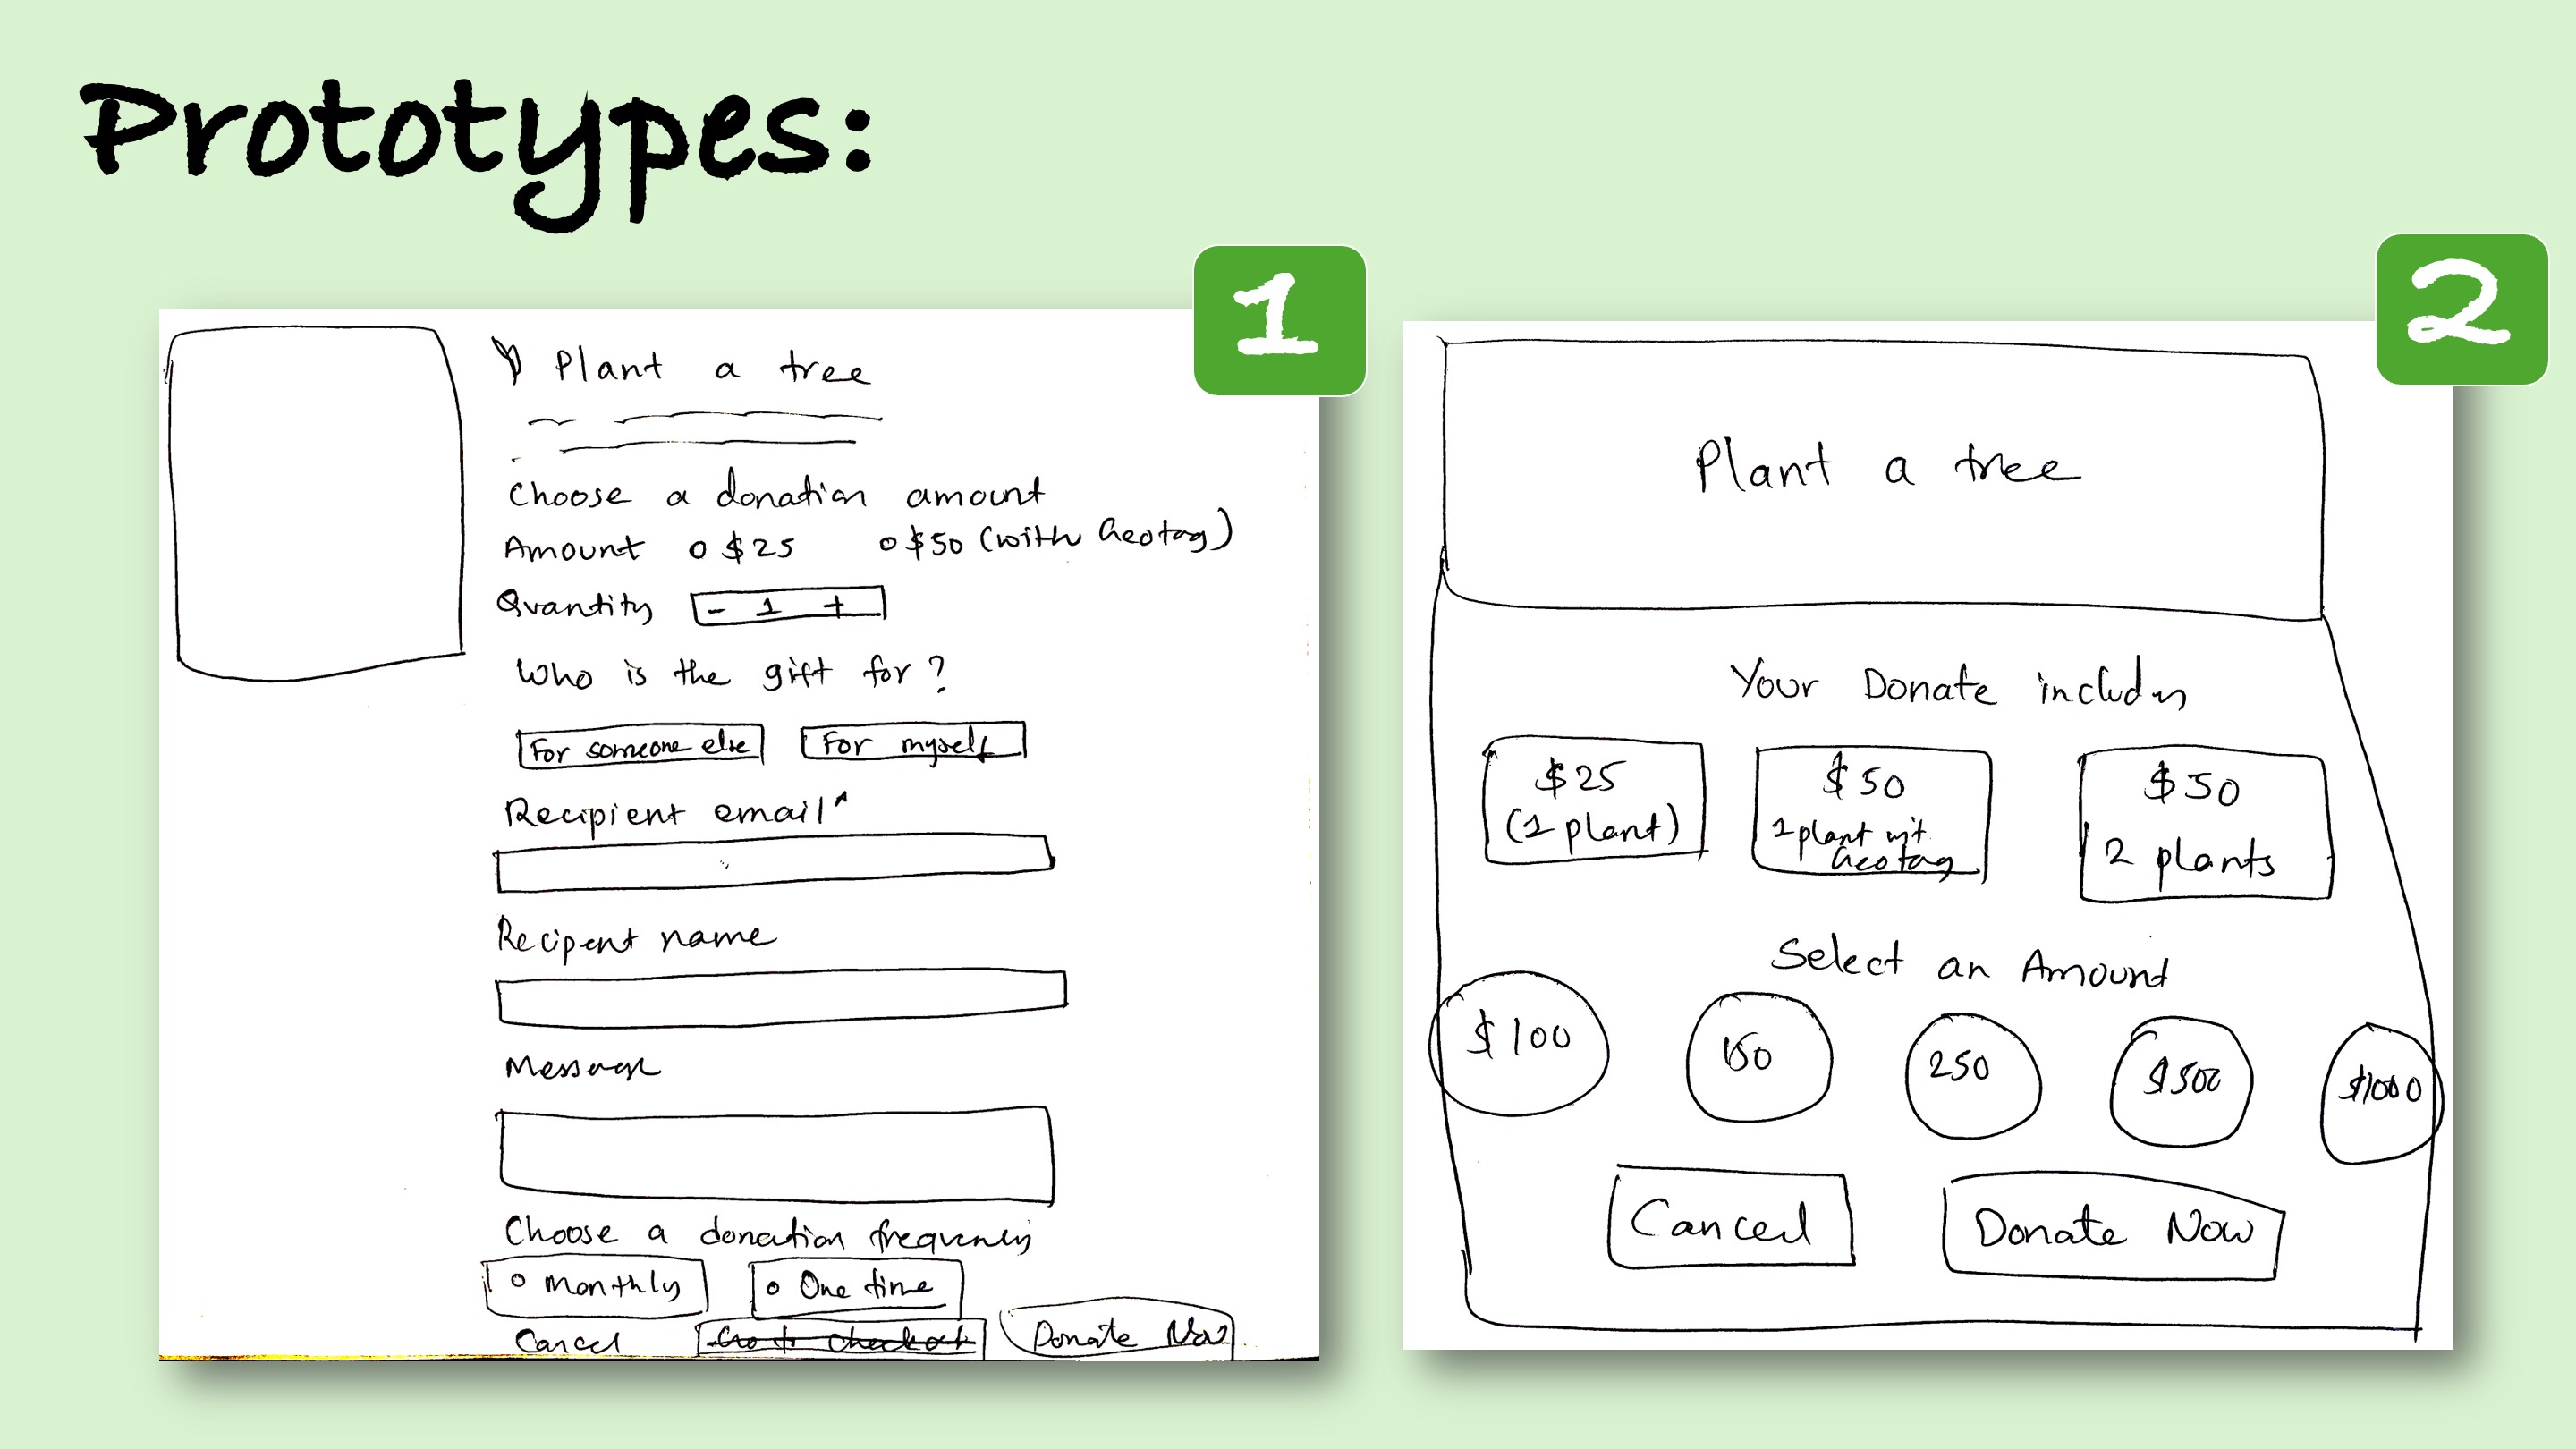 Prototypes:
1
Plant a tree
Choose a donation amount
Amount $25 $50 (with Geotag)
Quantity - 1 +
Who is the gift for?
For someone else For myself
Recipient email
Recipent name
Message
Choose a donation frequency
Monthly One time
Cancel Go to checkout Donate Now
2
Plant a tree
Your Donate includes
$25 $50 $50
(1 plant) 1 plant wit Geotag 2 plants
Select an Amount
$100 150 250 $500 $1000
Cancel Donate Now